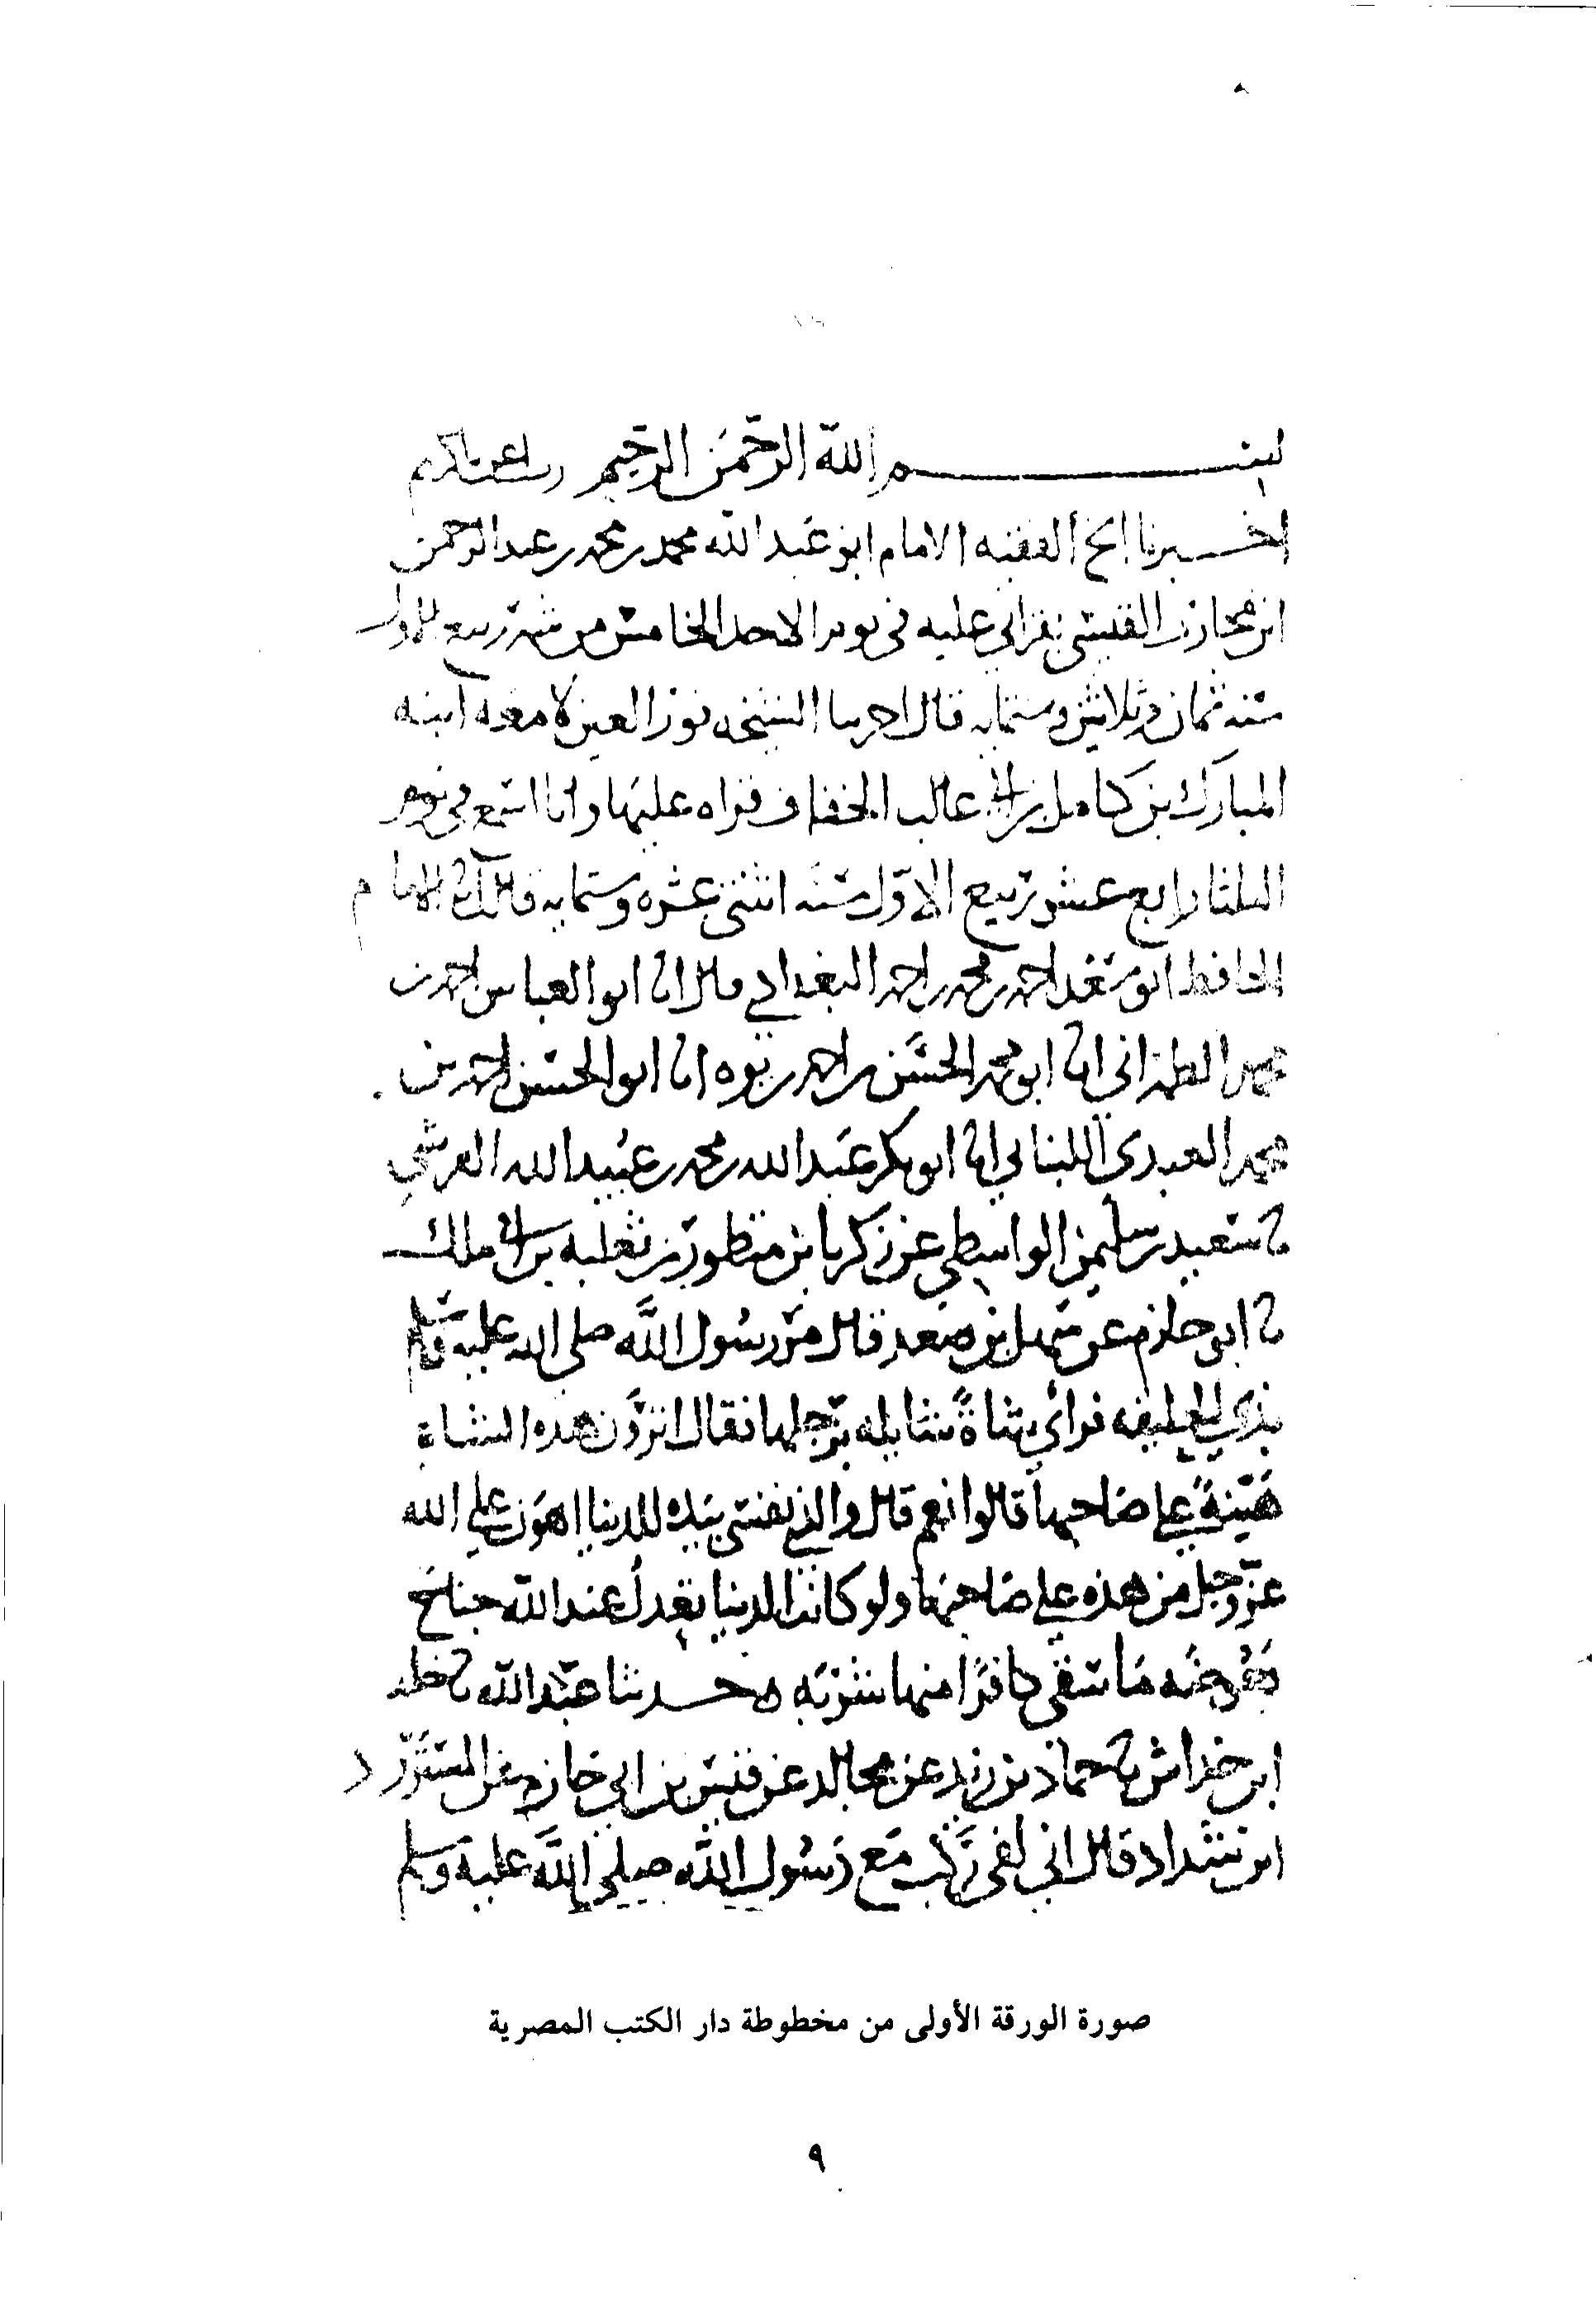 بسم الله الرحمن الرحيم رب اعن يا كريم
اخبرنا الشيخ الفقيه الامام ابو عبد الله محمد بن محمد بن عبد الرحمن
ابن القيسي بقراتي عليه في يوم الاحد الخامس من شهر ربيع الاول
سنه ثمان وثلاثين وستمايه قال اخبرتنا الشيخه نور العين لامعه ابنه
المبارك بن كامل بن ابي غالب الخفاف قراه عليها وانا اسمع في يوم
الثلثا رابع عشر ربيع الاول سنه اثنتي عشره وستمايه قالت انا الامام
الحافظ ابو سعد احمد بن محمد بن احمد البغدادي قال انا ابو العباس احمد بن
محمد الطهراني انا ابو محمد الحسن بن احمد بن يوه انا ابو الحسن احمد بن
محمد العبدي اللنباني انا ابو بكر عبد الله بن محمد بن عبيد الله القرشي
نا سعيد بن سليمن الواسطي عن زكريا بن منظور بن ثعلبه بن ابي ملك
نا ابو حازم عن سهل بن سعد قال مر رسول الله صلى الله عليه وسلم
بذي الحليفه فراى شاةً شايله برجلها فقال اترون هذه الشاه
هينةً على صاحبها قالوا نعم قال والذي نفسي بيده للدنيا اهون على الله
عز وجل من هذه على صاحبها ولو كانت الدنيا تعدل عند الله جناح
بعوضه ما سقى كافرًا منها شربه ه حدثنا عبد الله نا خلد
ابن خداش نا حماد بن زيد عن مجالد عن قيس بن ابي حازم عن المستورد
ابن شداد قال اني لفي ركب مع رسول الله صلى الله عليه وسلم
صورة الورقة الأولى من مخطوطة دار الكتب المصرية
٩